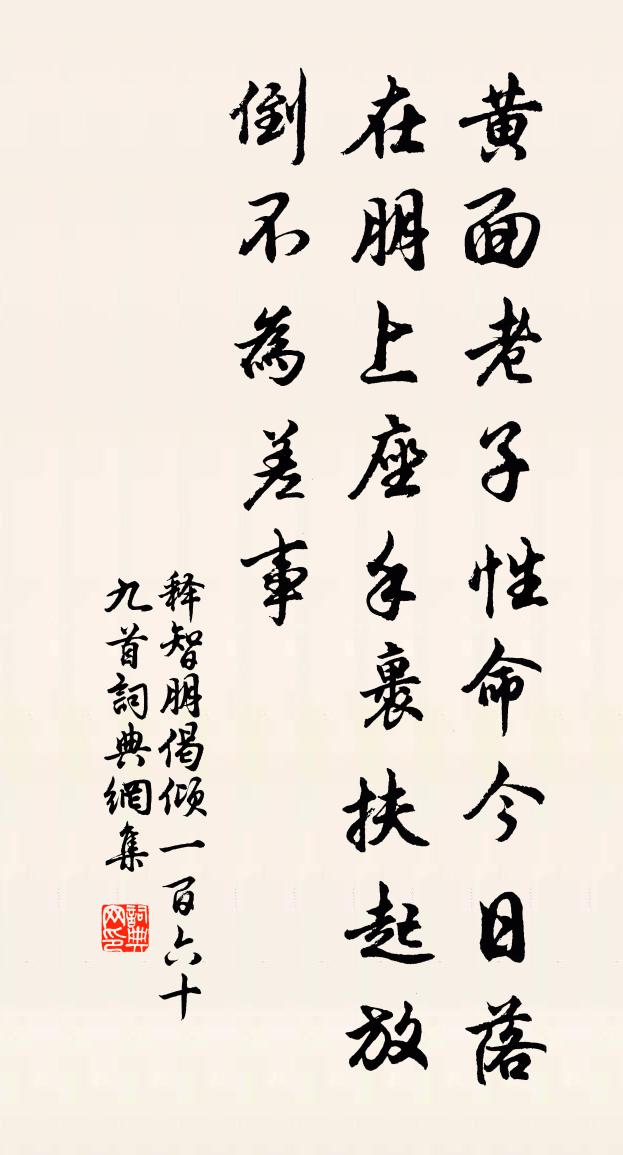 黄面老子性命今日落
在朋上座手裏扶起放
倒不為差事
释智朋偈倾一百六十
九首詞典網集
詞典網印